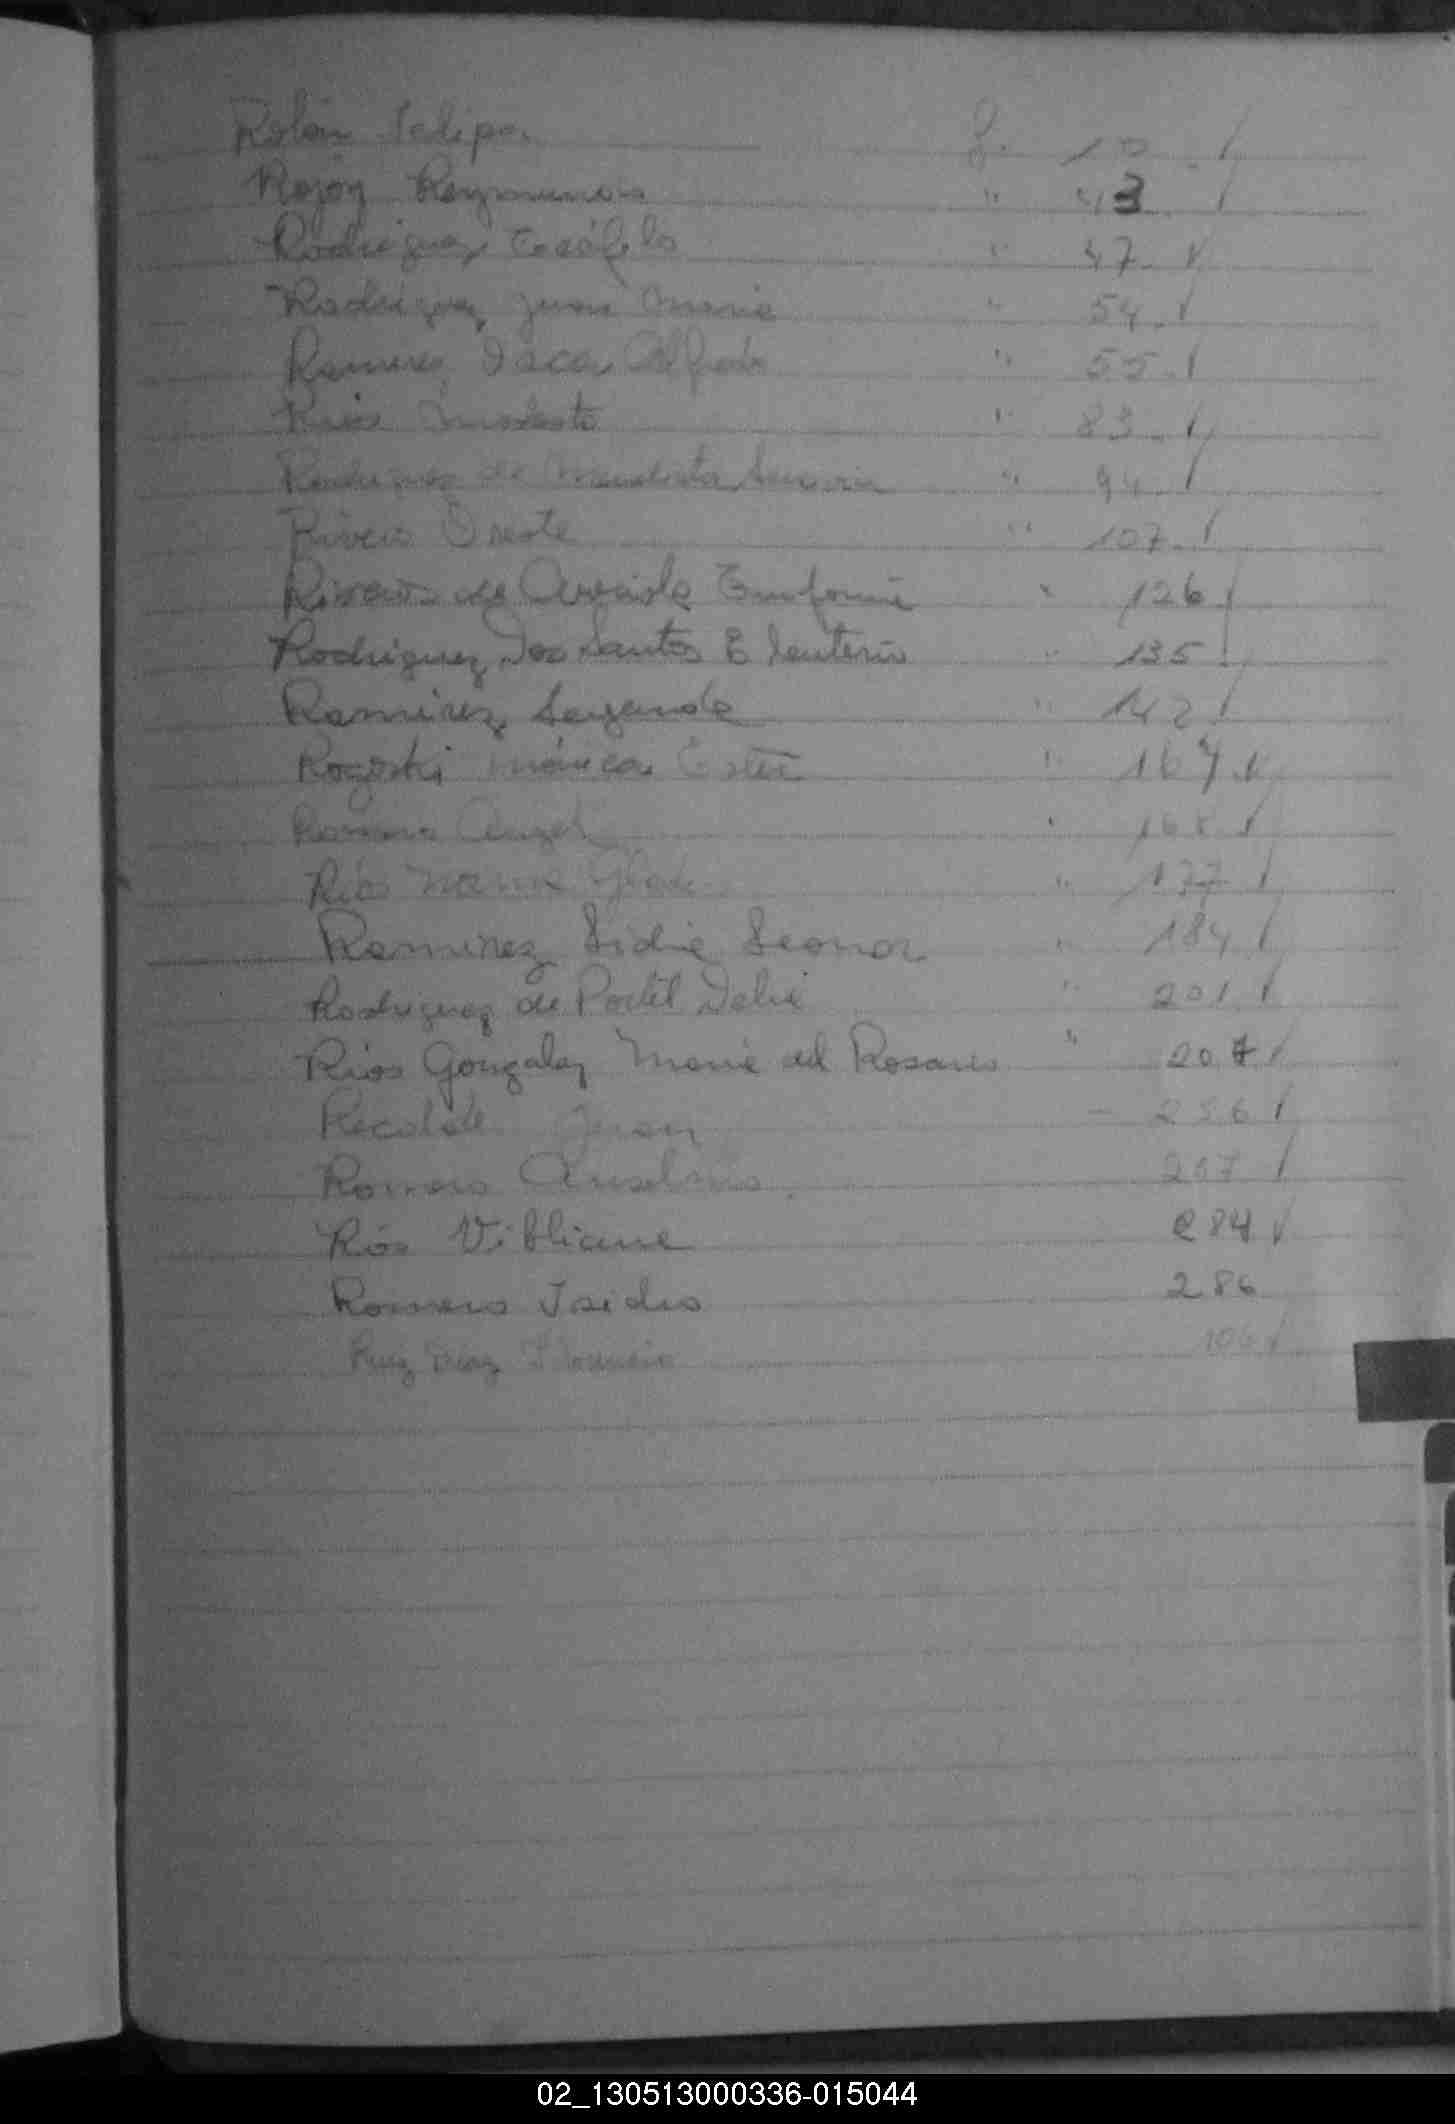 Rolón Felipa f. 10 /
Rojoy Raymundo " 43 /
Rodriguez Teófilo " 47 /
Rodriguez Juan Maria " 54 /
Ramirez Alfredo " 55 /
Rios Modesto " 83 /
Rodriguez de " 94 /
Rivero Oreste " 107 /
Riveros de " 126 /
Rodriguez Dos Santos Eleuterio " 135 /
Ramirez Segunda " 142 /
Mónica Ester " 164 /
Romero Angel " 168 /
Rios Maria " 177 /
Ramirez Lidia Leonor " 184 /
Rodriguez de Portel Delia " 201 /
Rios Gonzalez Maria del Rosario " 207 /
Recalde Juan - 256 /
Romero Anselmo 267 /
Ríos Vibliana 284 /
Romero Isidro 286
Ruiz Diaz 106 /
02_130513000336-015044